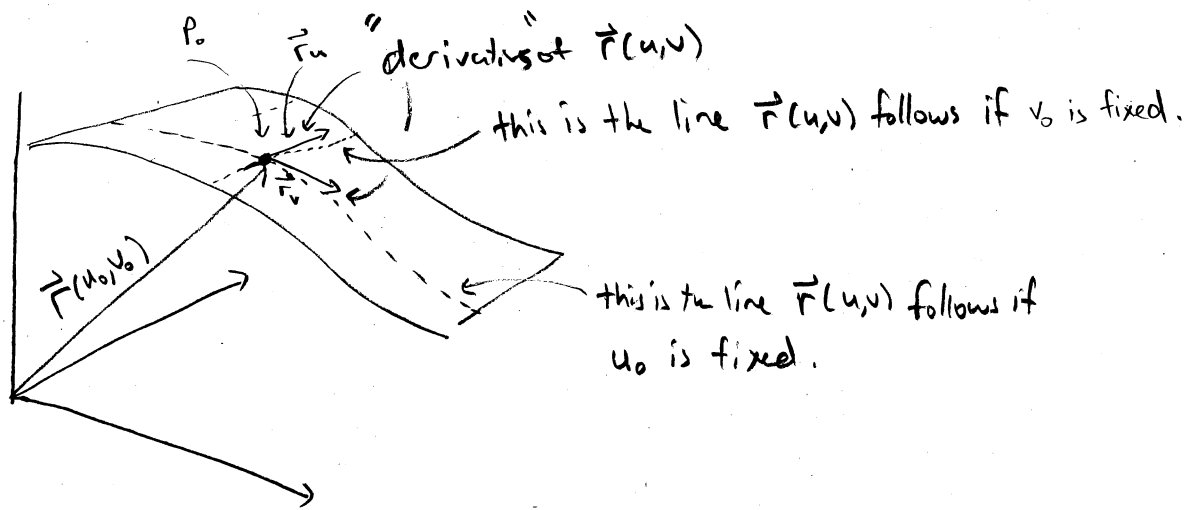 P₀
r⃗u
"derivatives" of r⃗(u,v)
this is the line r⃗(u,v) follows if v₀ is fixed.
r⃗v
r⃗(u₀,v₀)
this is the line r⃗(u,v) follows if
u₀ is fixed.